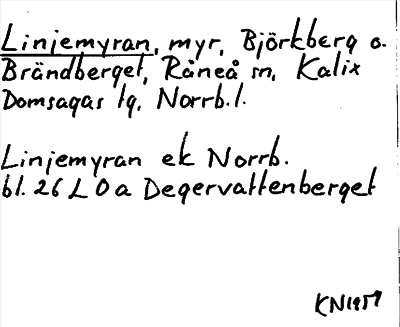 Linjemyran, myr, Björkberg o.
Brändberget, Råneå sn, Kalix
Domsagas tg, Norrb.l.
Linjemyran ek Norrb.
bl. 26 L 0 a Degervattenberget
KN1959